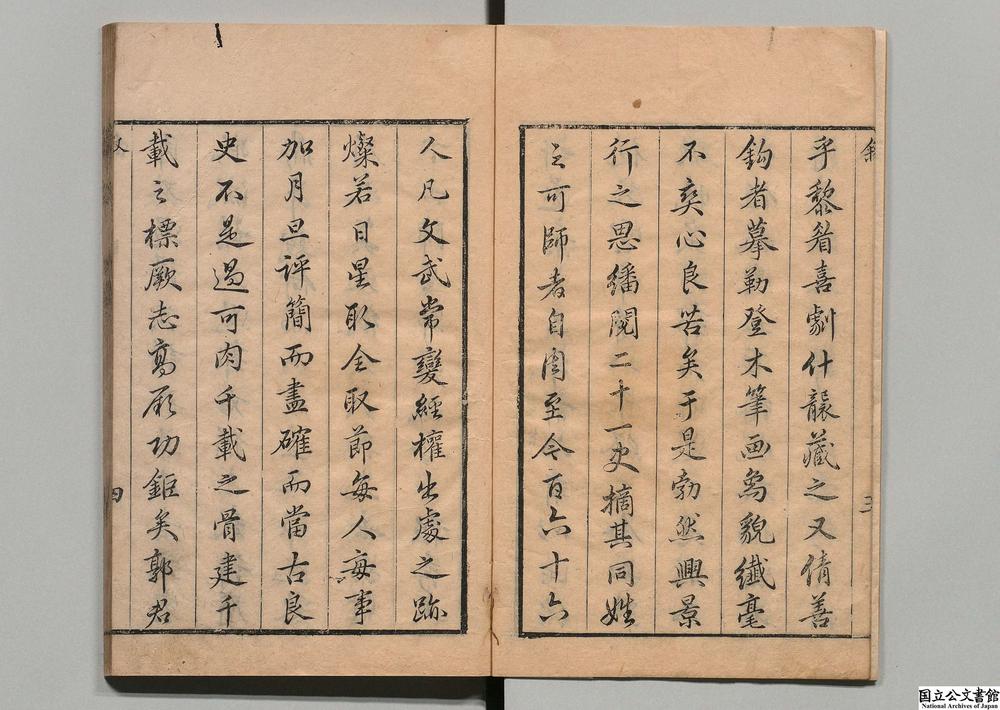 乎黎眷喜劇什襲藏之又倩善
鈎者摹勒登木筆画為貌纖毫
不爽心良苦矣于是勃然興景
行之思繙閱二十一史摘其同姓
之可師者自周至今百六十六
三
人凡文武常變經權出處之跡
燦若日星取全取節每人每事
加月旦評簡而盡確而當古良
史不是過可肉千載之骨建千
載之標厥志高厥功鉅矣郭君
四
国立公文書館
National Archives of Japan